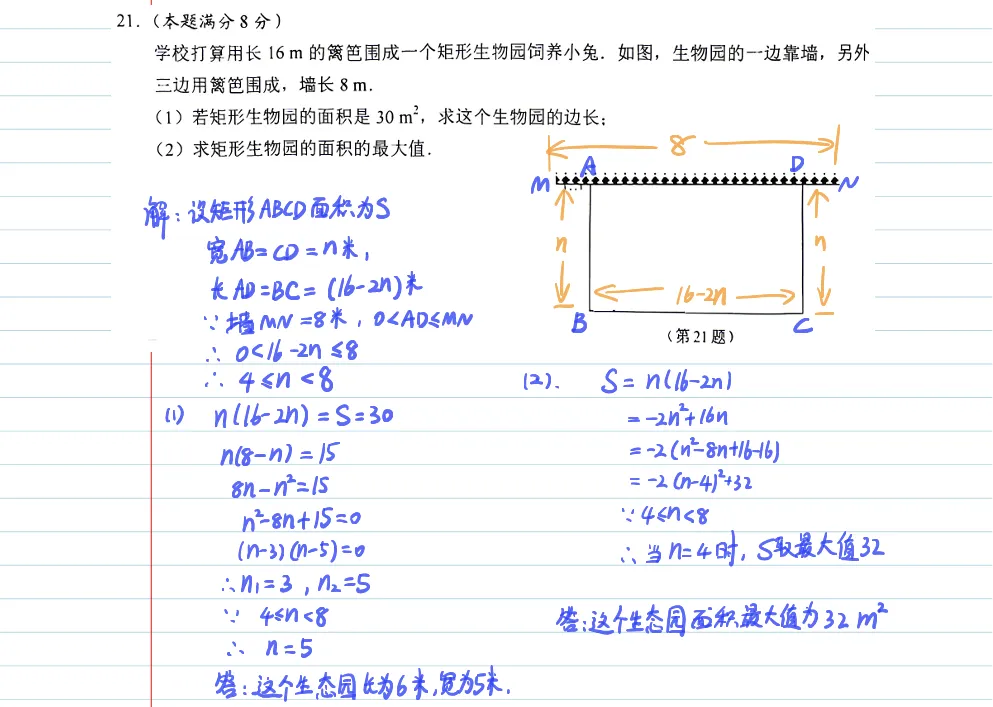 21.（本题满分8分）
学校打算用长 16 m 的篱笆围成一个矩形生物园饲养小兔．如图，生物园的一边靠墙，另外
三边用篱笆围成，墙长 8 m．
（1）若矩形生物园的面积是 30 m²，求这个生物园的边长；
（2）求矩形生物园的面积的最大值．
8
M A D N
n n
16-2n
B C
（第21题）
解：设矩形ABCD面积为S
宽AB=CD=n米，
长AD=BC=(16-2n)米
∵墙MN=8米，0<AD≤MN
∴ 0<16-2n≤8
∴ 4≤n<8
(1) n(16-2n)=S=30
n(8-n)=15
8n-n²=15
n²-8n+15=0
(n-3)(n-5)=0
∴n₁=3，n₂=5
∵ 4≤n<8
∴ n=5
答：这个生态园长为6米，宽为5米．
(2). S=n(16-2n)
=-2n²+16n
=-2(n²-8n+16-16)
=-2(n-4)²+32
∵4≤n<8
∴当n=4时，S取最大值32
答：这个生态园面积最大值为32 m²